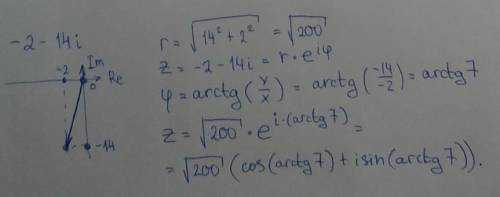 -2-14i
Im
-2
0
Re
-14
r = √(14² + 2²) = √200
z = -2-14i = r · e^(iφ)
φ = arctg(y/x) = arctg(-14/-2) = arctg 7
z = √200 · e^(i·(arctg 7)) =
= √200 (cos(arctg 7) + i sin(arctg 7)).